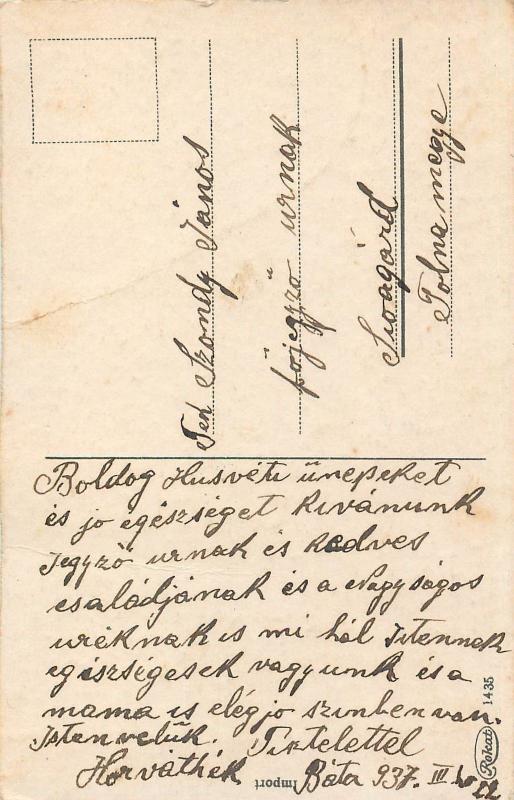 Boldog Husvéti ünnepeket
és jo egészséget kivánunk
Jegyző urnak és kedves
családjának és a Nagyságos
uréknak is mi hál Istennek
egészségesek vagyunk és a
mama is elég jo szinben van.
Isten velük. Tisztelettel
Horváthék Báta 937. III hó 22
Tek Szondy János
főjegyző urnak
Sioagárd
Tolna megye
Import
Rokat
1435